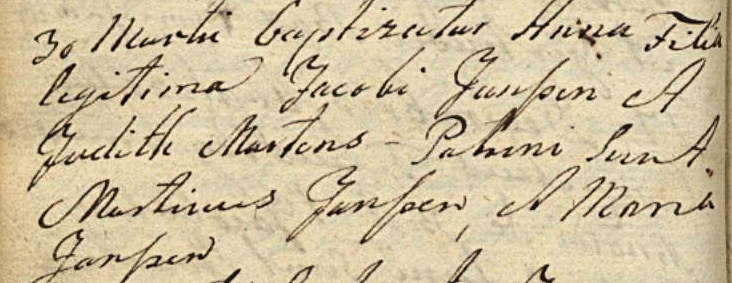 30 Martii baptizatur Anna Filia
legitima Jacobi Janssen et
Judith Martens - Patrini sunt
Martinus Janssen, et Maria
Janssen